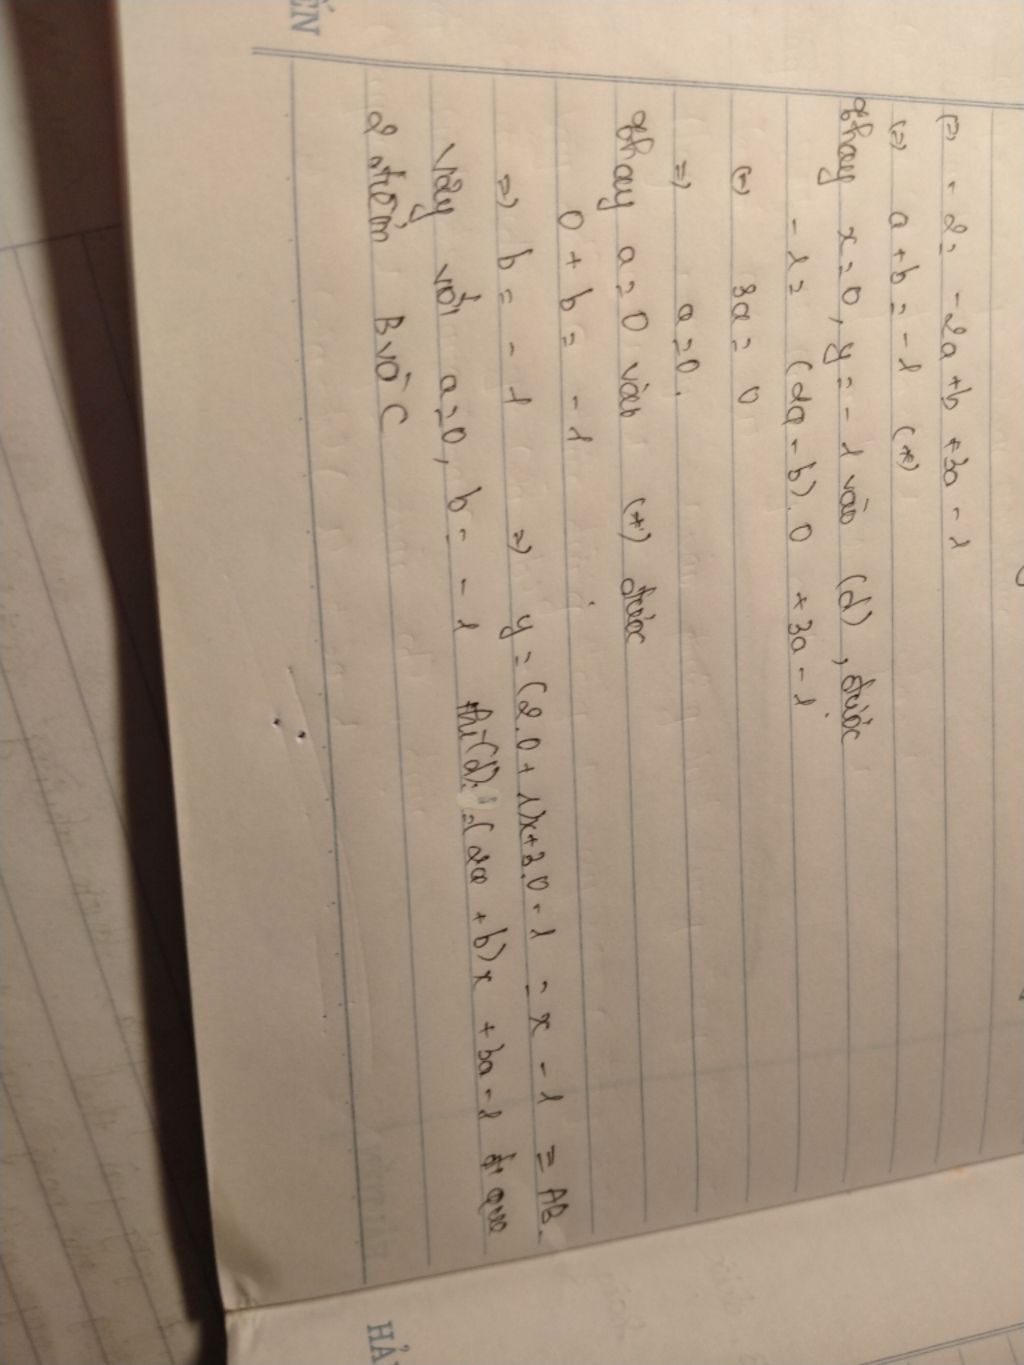 (=) - 2 = - 2a + b + 3a - 1
(=) a + b = - 1 (*)
Thay x = 0, y = - 1 vào (d), được
- 1 = (2a - b). 0 + 3a - 1
(=) 3a = 0
=) a = 0.
Thay a = 0 vào (*) được
0 + b = - 1
=) b = - 1 =) y = (2.0 + 1)x + 3.0 - 1 = x - 1 = AB.
Vậy với a = 0, b = - 1 thì (d): = (2a + b)x + 3a - 1 đi qua
2 điểm B và C
ẾN